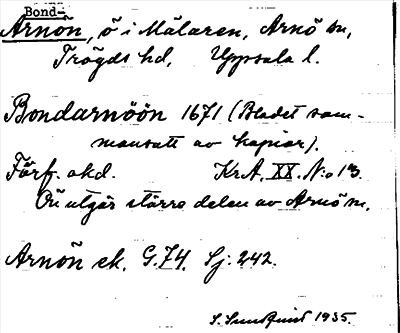 Bond-
Arnön, ö i Mälaren, Arnö sn,
Trögds hd, Uppsala l.
Bondarnöön 1671 (Bladet sam-
mansatt av kopior).
Förf. okd. Kr.A. XX. N:o 13.
Ön utgör större delen av Arnö sn.
Arnön ek. G.74. Sj: 242.
S. Sundquist 1935.